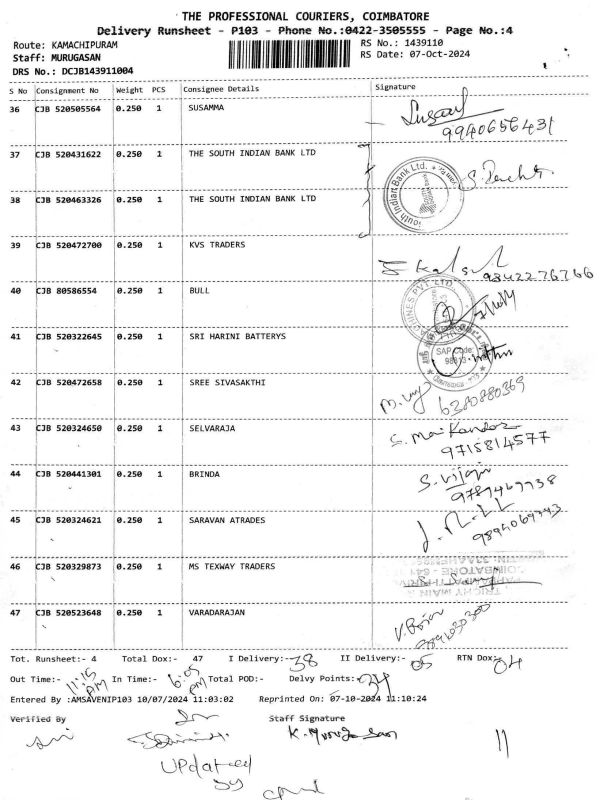 THE PROFESSIONAL COURIERS, COIMBATORE
Delivery Runsheet - P103 - Phone No.:0422-3505555 - Page No.:4
Route: KAMACHIPURAM
RS No.: 1439110
Staff: MURUGASAN
RS Date: 07-Oct-2024
DRS No.: DCJB143911004
S No Consignment No Weight PCS Consignee Details Signature
36 CJB 520505564 0.250 1 SUSAMMA
9940656431
37 CJB 520431622 0.250 1 THE SOUTH INDIAN BANK LTD
South Indian Bank Ltd.
38 CJB 520463326 0.250 1 THE SOUTH INDIAN BANK LTD
39 CJB 520472700 0.250 1 KVS TRADERS
9842276766
40 CJB 80586554 0.250 1 BULL
MACHINES PVT. LTD.
41 CJB 520322645 0.250 1 SRI HARINI BATTERYS
SAP Code:
42 CJB 520472658 0.250 1 SREE SIVASAKTHI
6380880369
43 CJB 520324650 0.250 1 SELVARAJA
9715814577
44 CJB 520441301 0.250 1 BRINDA
45 CJB 520324621 0.250 1 SARAVAN ATRADES
46 CJB 520329873 0.250 1 MS TEXWAY TRADERS
COIMBATORE - 641
TRICHY MAIN R
47 CJB 520523648 0.250 1 VARADARAJAN
Tot. Runsheet:- 4 Total Dox:- 47 I Delivery:- 38 II Delivery:- 05 RTN Dox:- 04
Out Time:- 11:15 PM In Time:- 6:05 PM Total POD:- Delvy Points:- 34
Entered By :AMSAVENIP103 10/07/2024 11:03:02 Reprinted On: 07-10-2024 11:10:24
Verified By Staff Signature
Updated
by